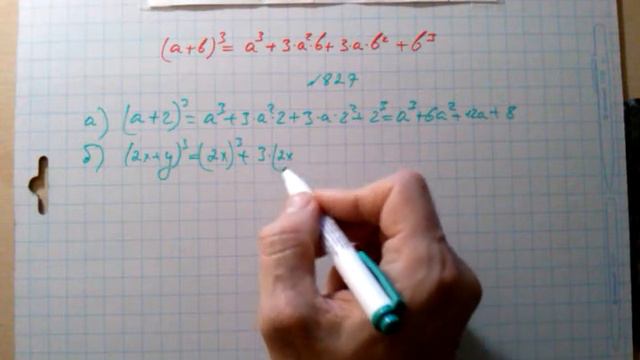 (a+b)³ = a³ + 3·a²·b + 3·a·b² + b³
№827
а) (a+2)³ = a³ + 3·a²·2 + 3·a·2² + 2³ = a³ + 6a² + 12a + 8
б) (2x+y)³ = (2x)³ + 3·(2x